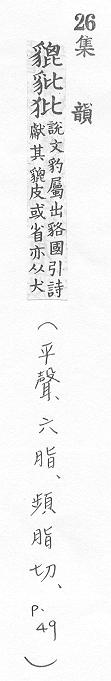 26
集韻
貔豼
說文豹屬出貉國引詩
獻其貔皮或省亦从犬
(平聲、六脂、頻脂切、p.49)